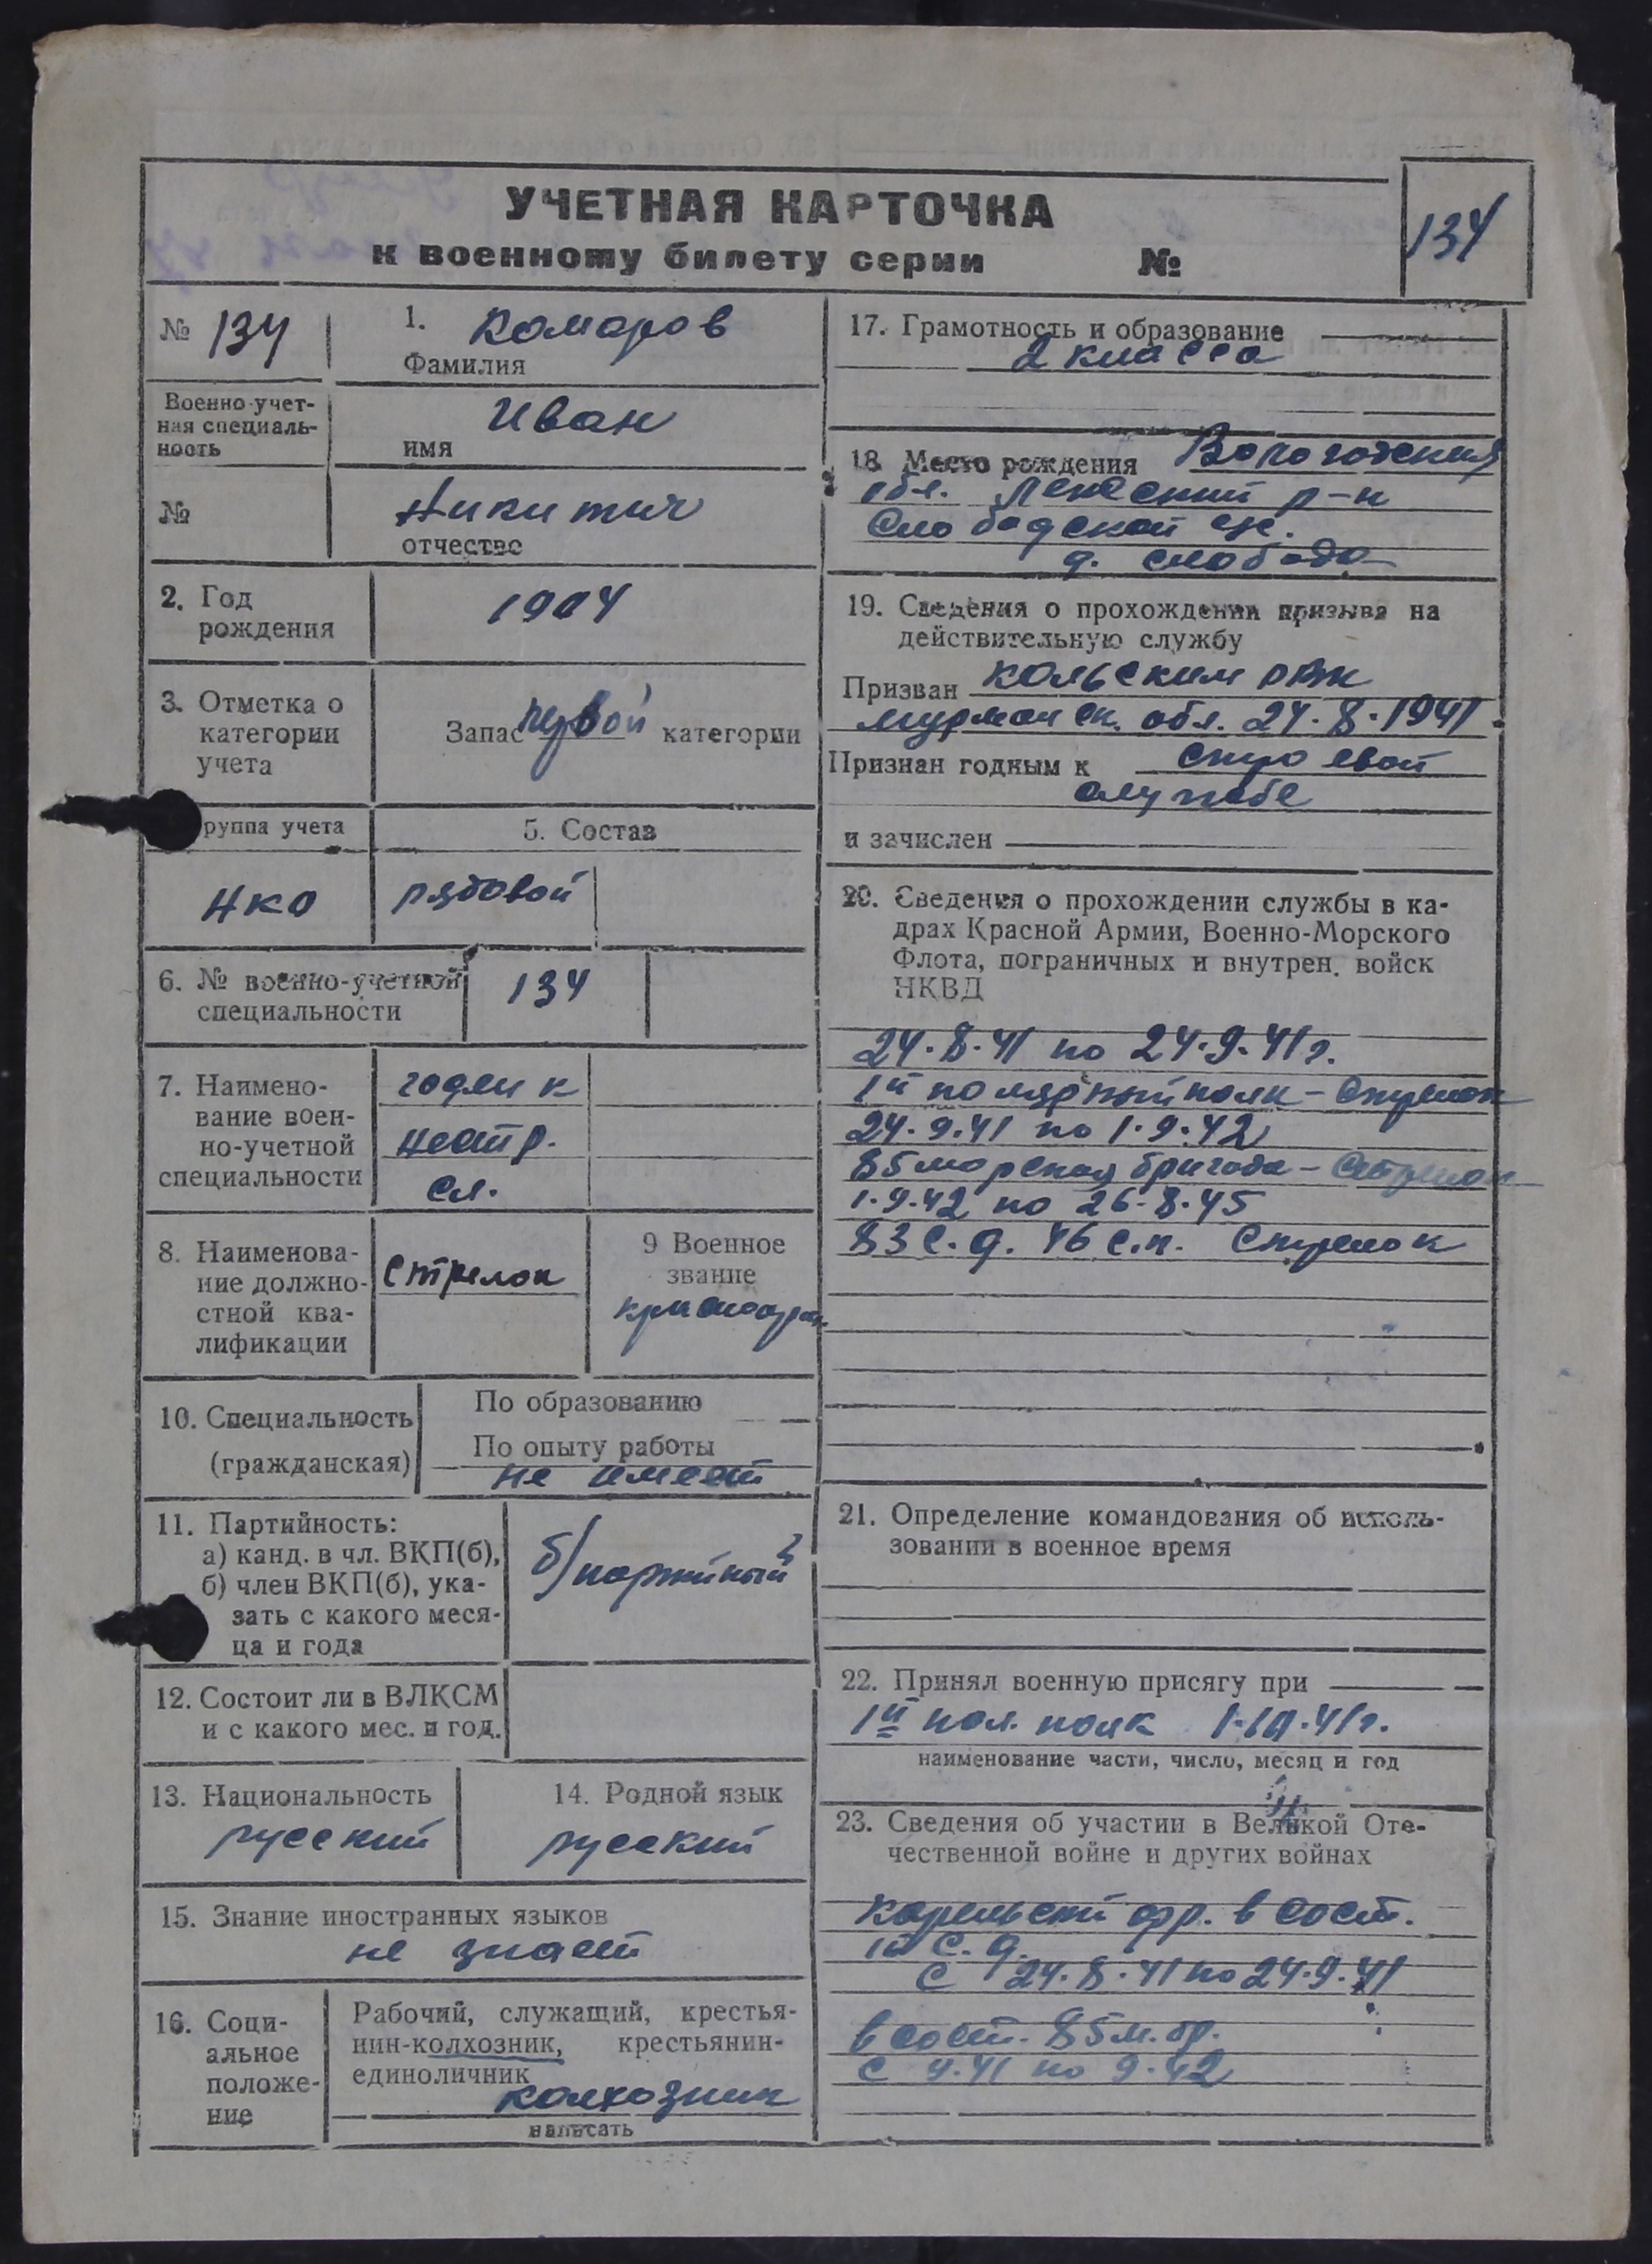 УЧЕТНАЯ КАРТОЧКА
к военному билету серии №
134
№ 134
1. Комаров
Фамилия
Военно-учет-
ная специаль-
ность
Иван
имя
№
Никитич
отчество
2. Год
рождения
1904
3. Отметка о
категории
учета
Запас первой категории
руппа учета
5. Состав
НКО
рядовой
6. № военно-учетной
специальности
134
7. Наимено-
вание воен-
но-учетной
специальности
годен к
нестр.
сл.
8. Наименова-
ние должно-
стной ква-
лификации
стрелок
9 Военное
звание
красноарм.
10. Специальность
(гражданская)
По образованию
По опыту работы
не имеет
11. Партийность:
а) канд. в чл. ВКП(б),
б) член ВКП(б), ука-
зать с какого меся-
ца и года
б/партийный
12. Состоит ли в ВЛКСМ
и с какого мес. и год.
13. Национальность
русский
14. Родной язык
русский
15. Знание иностранных языков
не знает
16. Соци-
альное
положе-
ние
Рабочий, служащий, крестья-
нин-колхозник, крестьянин-
единоличник
колхозник
написать
17. Грамотность и образование
2 класса
18. Место рождения Вологодская
обл. Ленский р-н
Слободской с/с.
д. слобода
19. Сведения о прохождении призыва на
действительную службу
Призван кольским рвк
мурманск. обл. 24.8.1941
Признан годным к строевой
службе
и зачислен
20. Сведения о прохождении службы в ка-
драх Красной Армии, Военно-Морского
Флота, пограничных и внутрен. войск
НКВД
24.8.41 по 24.9.41г.
1й полярный полк - стрелок
24.9.41 по 1.9.42
85 морская бригада - стрелок
1.9.42 по 26.8.45
83 с.д. 46 с.п. стрелок
21. Определение командования об исполь-
зовании в военное время
22. Принял военную присягу при
1й пол. полк 1.10.41г.
наименование части, число, месяц и год
23. Сведения об участии в Великой Оте-
чественной войне и других войнах
карельский фр. в сост.
1й с.д.
с 24.8.41 по 24.9.41
в сост. 85 м.бр.
с 9.41 по 9.42